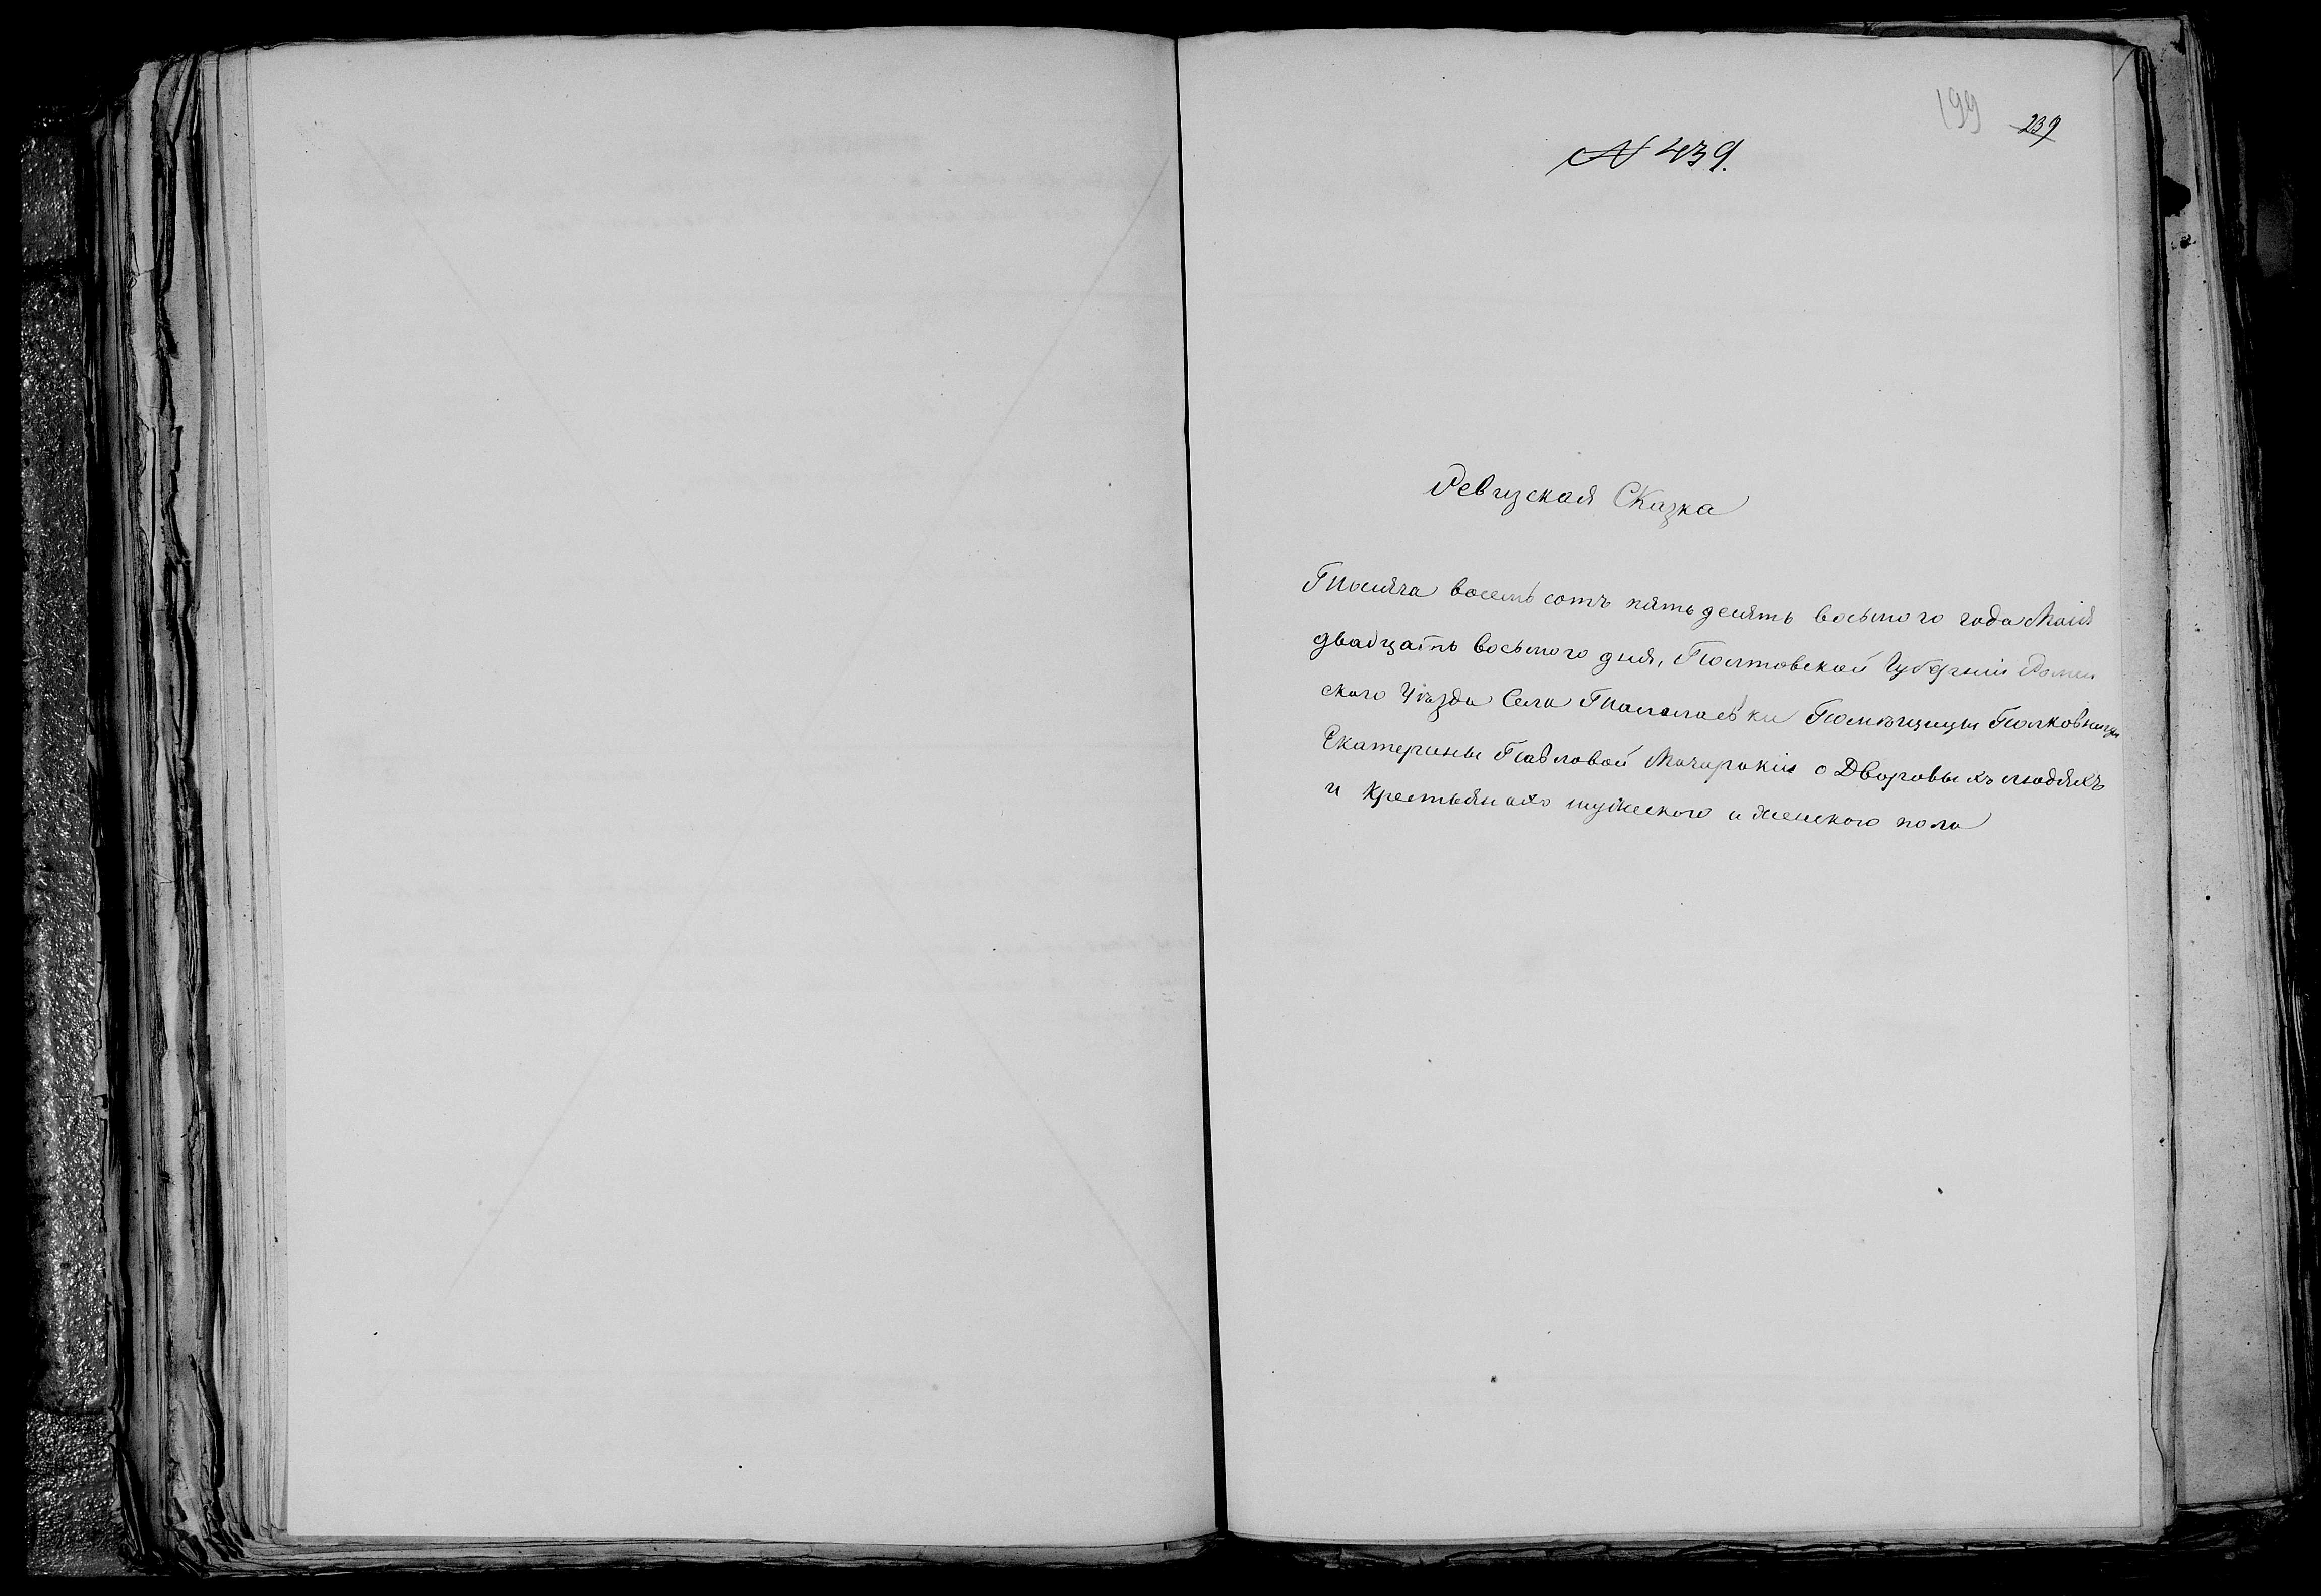 199 239
№ 439.
Ревизская Сказка
Тысяча восемь сотъ пятьдесятъ восьмого года Маія
двадцать восьмого дня, Полтавской Губерніи Ромен
ского Уѣзда Села Талалаевки Помѣщицы Полковницы
Екатерины Павловой о Дворовыхъ людяхъ
и Крестьянахъ мужеского и женского пола